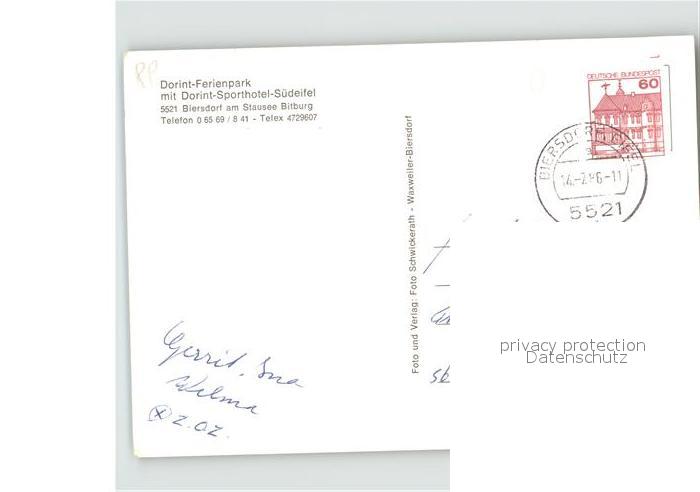 Dorint-Ferienpark
mit Dorint-Sporthotel-Südeifel
5521 Biersdorf am Stausee Bitburg
Telefon 0 65 69 / 8 41 - Telex 4729607
Foto und Verlag: Foto Schwickerath - Waxweiler-Biersdorf
DEUTSCHE BUNDESPOST
60
BIERSDORF EIFEL
14.-2.86-11
5521
Gerrit. Ina
Wilma
privacy protection
Datenschutz